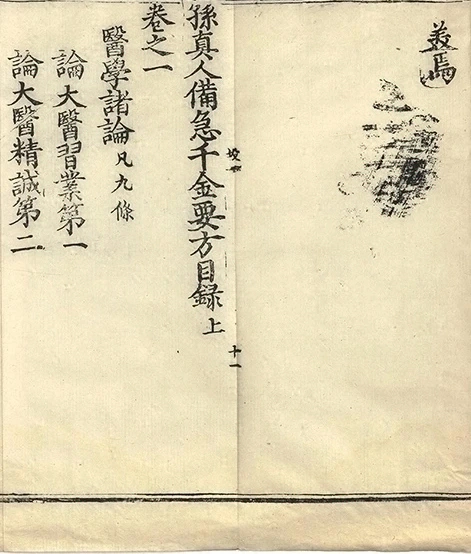 美焉
孫真人備急千金要方目録上
卷之一
醫學諸論凡九條
論大醫習業第一
論大醫精誠第二
十一